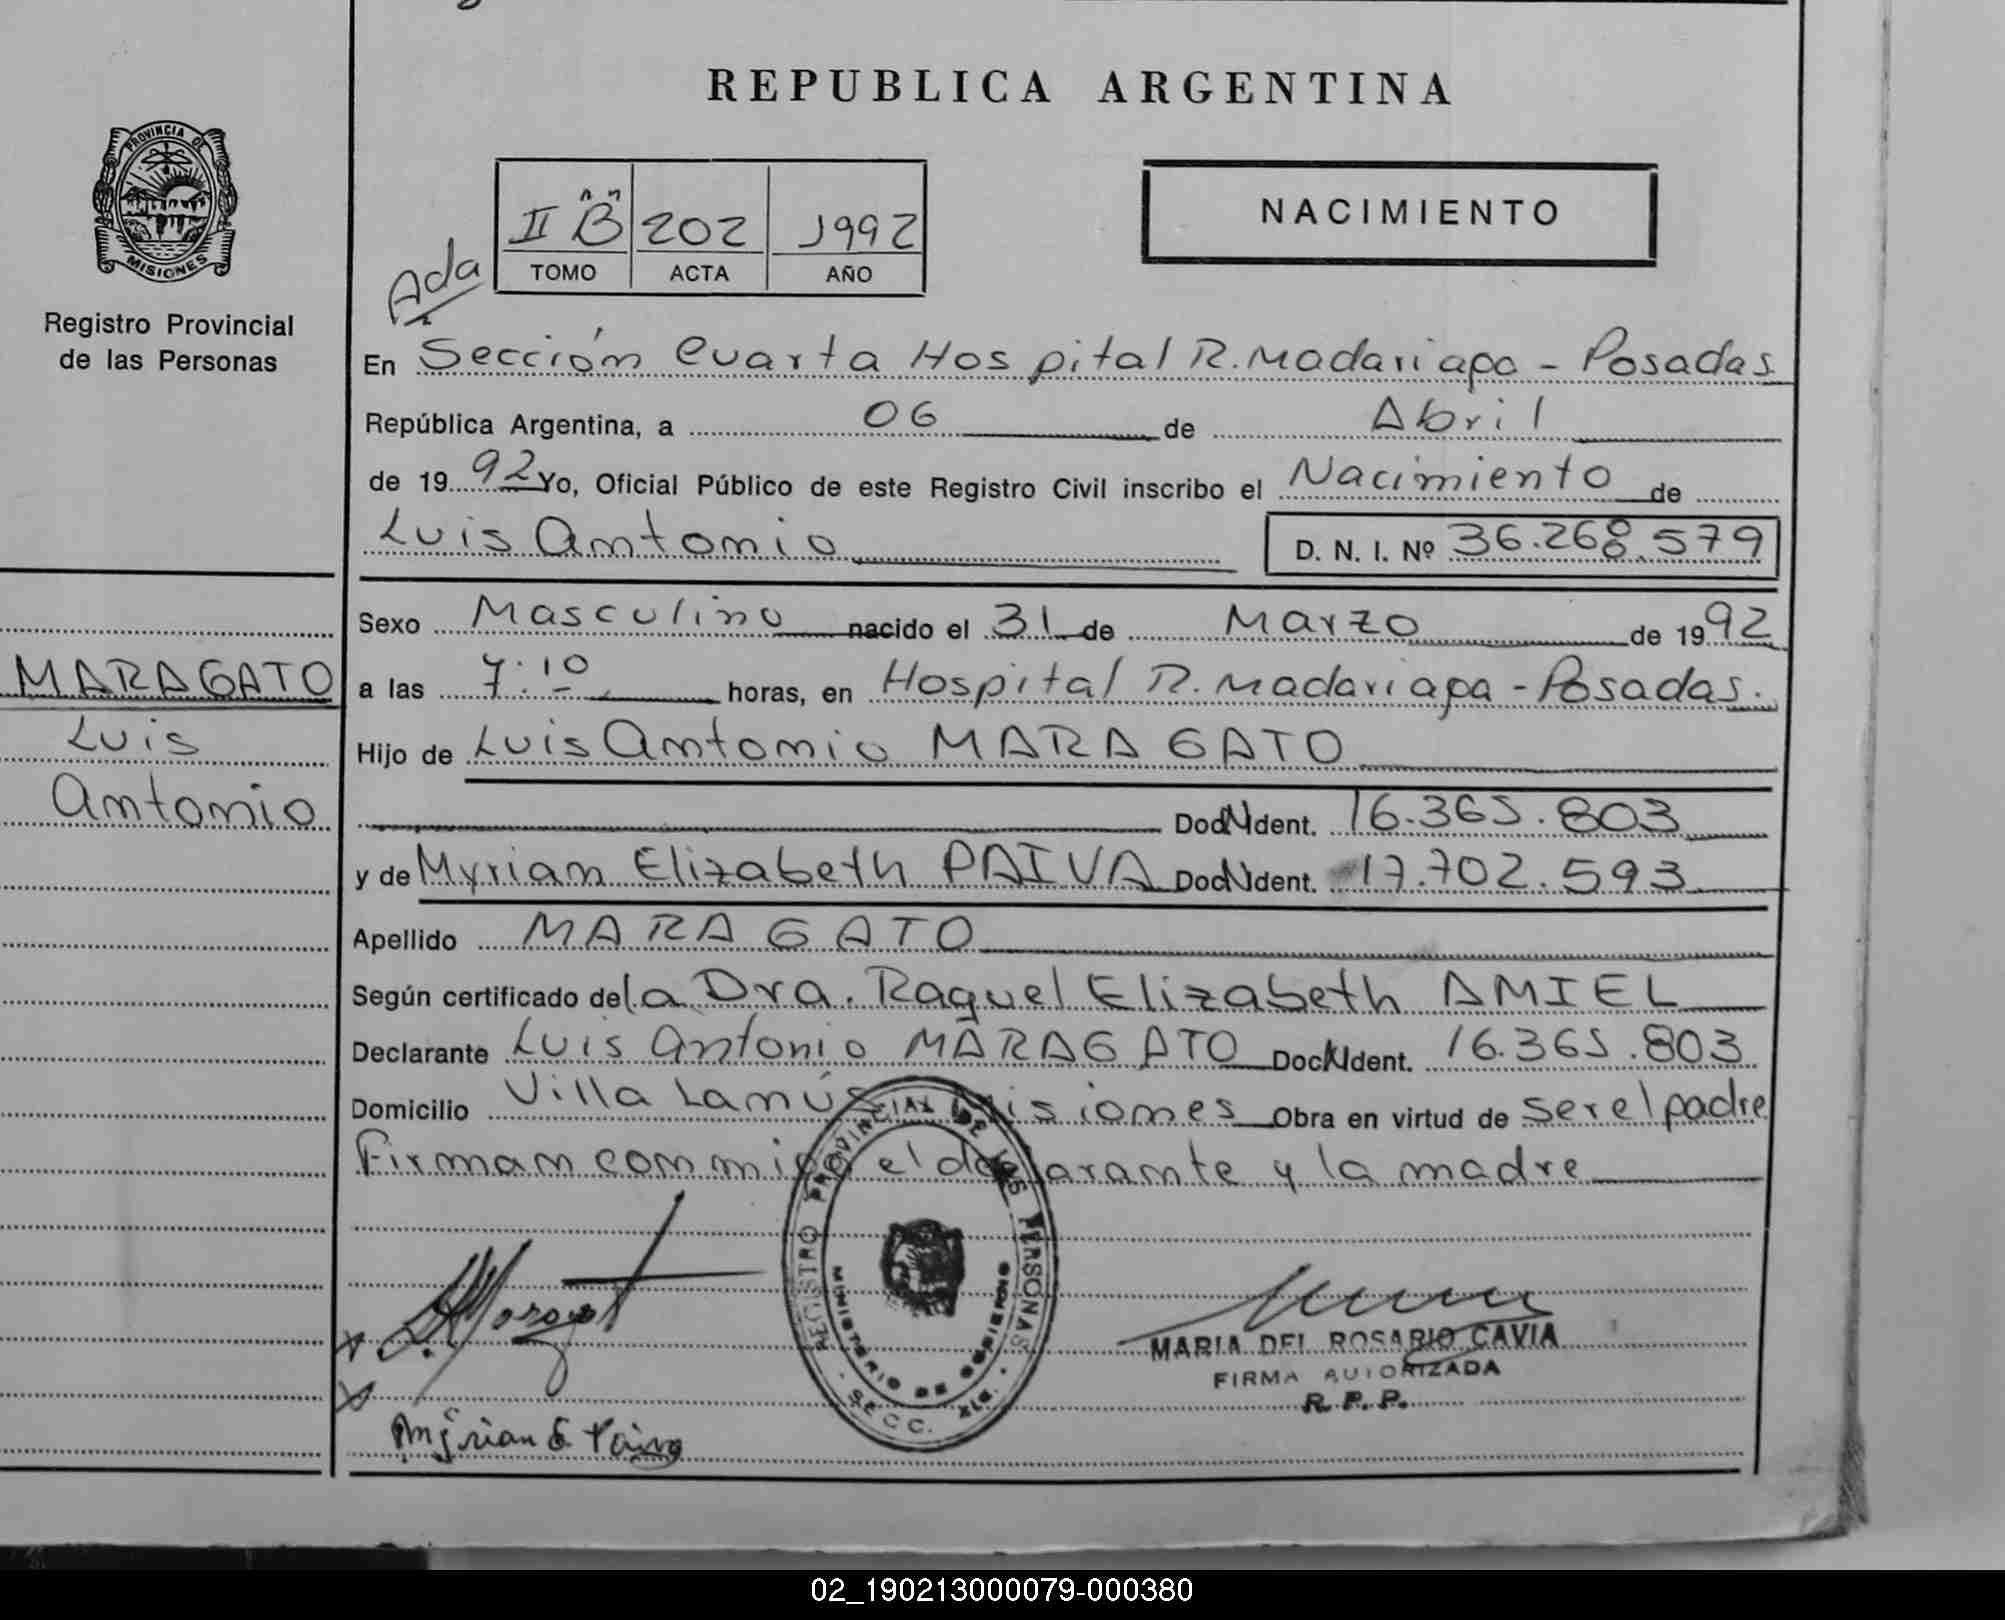 REPUBLICA ARGENTINA
PROVINCIA DE
MISIONES
Registro Provincial
de las Personas
II "B" 202 1992
TOMO ACTA AÑO
NACIMIENTO
Ada
En Sección Cuarta Hospital R. Madariaga - Posadas
República Argentina, a 06 de Abril
de 1992 Yo, Oficial Público de este Registro Civil inscribo el Nacimiento de
Luis Antonio D. N. I. Nº 36.268.579
Sexo Masculino nacido el 31 de Marzo de 1992
MARAGATO
a las 7:10 horas, en Hospital R. Madariaga - Posadas.
Luis
Hijo de Luis Antonio MARAGATO
Antonio
Doc N Ident. 16.365.803
y de Myrian Elizabeth PAIVA Doc N Ident. 17.702.593
Apellido MARAGATO
Según certificado de la Dra. Raquel Elizabeth AMIEL
Declarante Luis Antonio MARAGATO Doc N Ident. 16.365.803
Domicilio Villa Lanús Misiones Obra en virtud de ser el padre
Firman conmigo el declarante y la madre
REGISTRO PROVINCIAL DE LAS PERSONAS
MINISTERIO DE GOBIERNO
SECC. 4ta
MARIA DEL ROSARIO CAVIA
FIRMA AUTORIZADA
R. P. P.
Myrian E Paiva
02_190213000079-000380